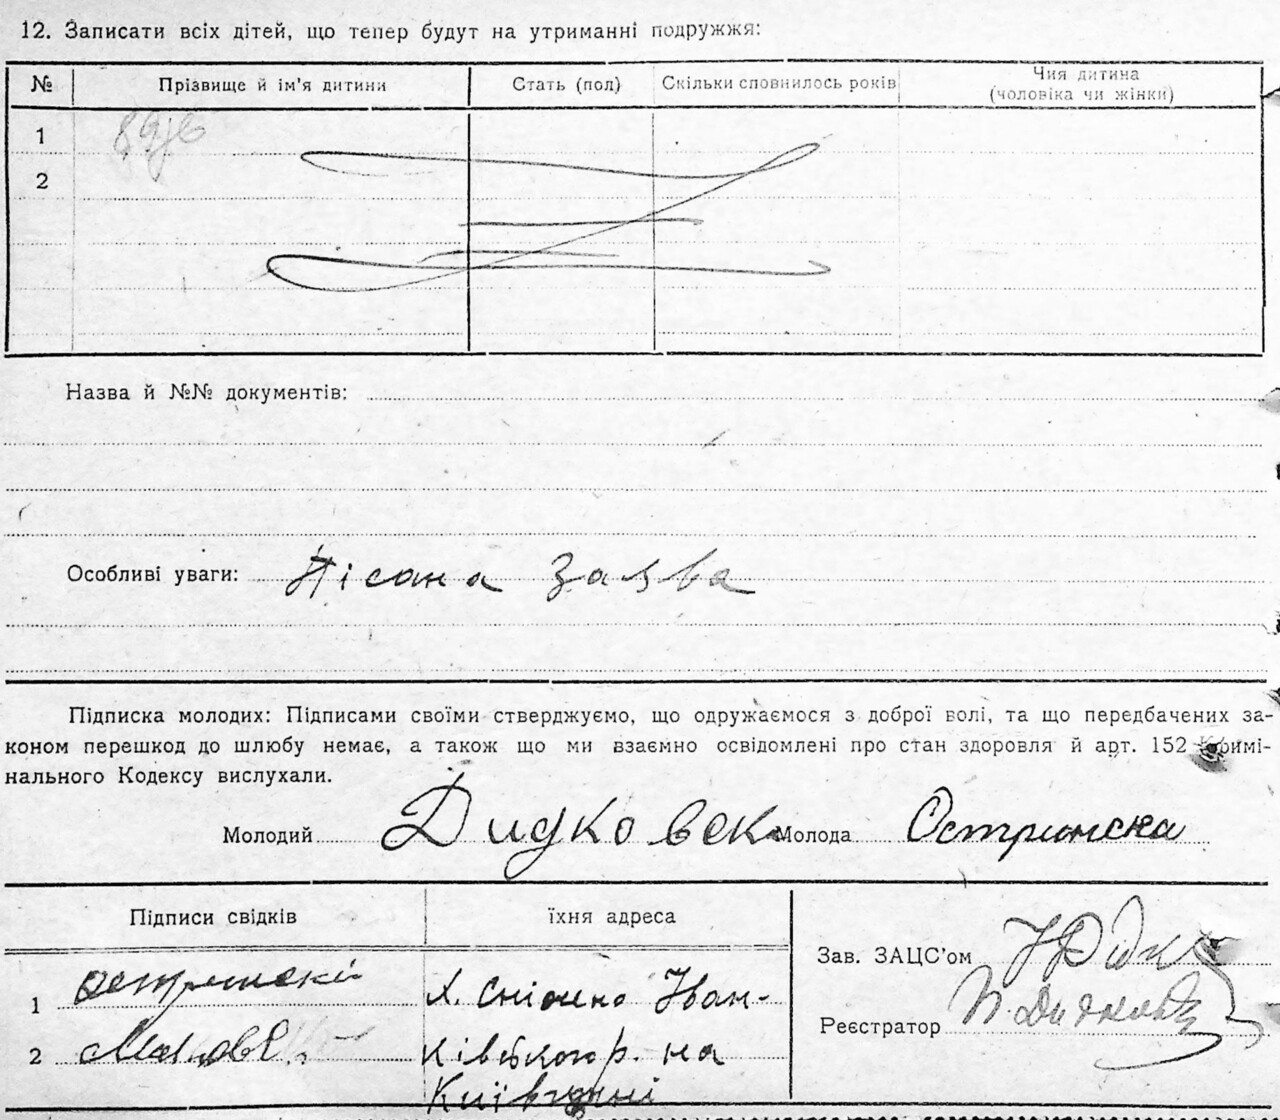 12. Записати всіх дітей, що тепер будут на утриманні подружжя:
№ Прізвище й ім'я дитини Стать (пол) Скільки сповнилось років Чия дитина
(чоловіка чи жінки)
1
2
Назва й №№ документів:
Особливі уваги: Пісана заява
Підписка молодих: Підписами своїми стверджуємо, що одружаємося з доброї волі, та що передбачених за-
коном перешкод до шлюбу немає, а також що ми взаємно освідомлені про стан здоровля й арт. 152 Кримі-
нального Кодексу вислухали.
Молодий Дидковск Молода Остринска
Підписи свідків їхня адреса
Зав. ЗАЦС'ом
1 Остринский Х. Сніжено Іван-
Реєстратор
2 ківского р. на
Київщині